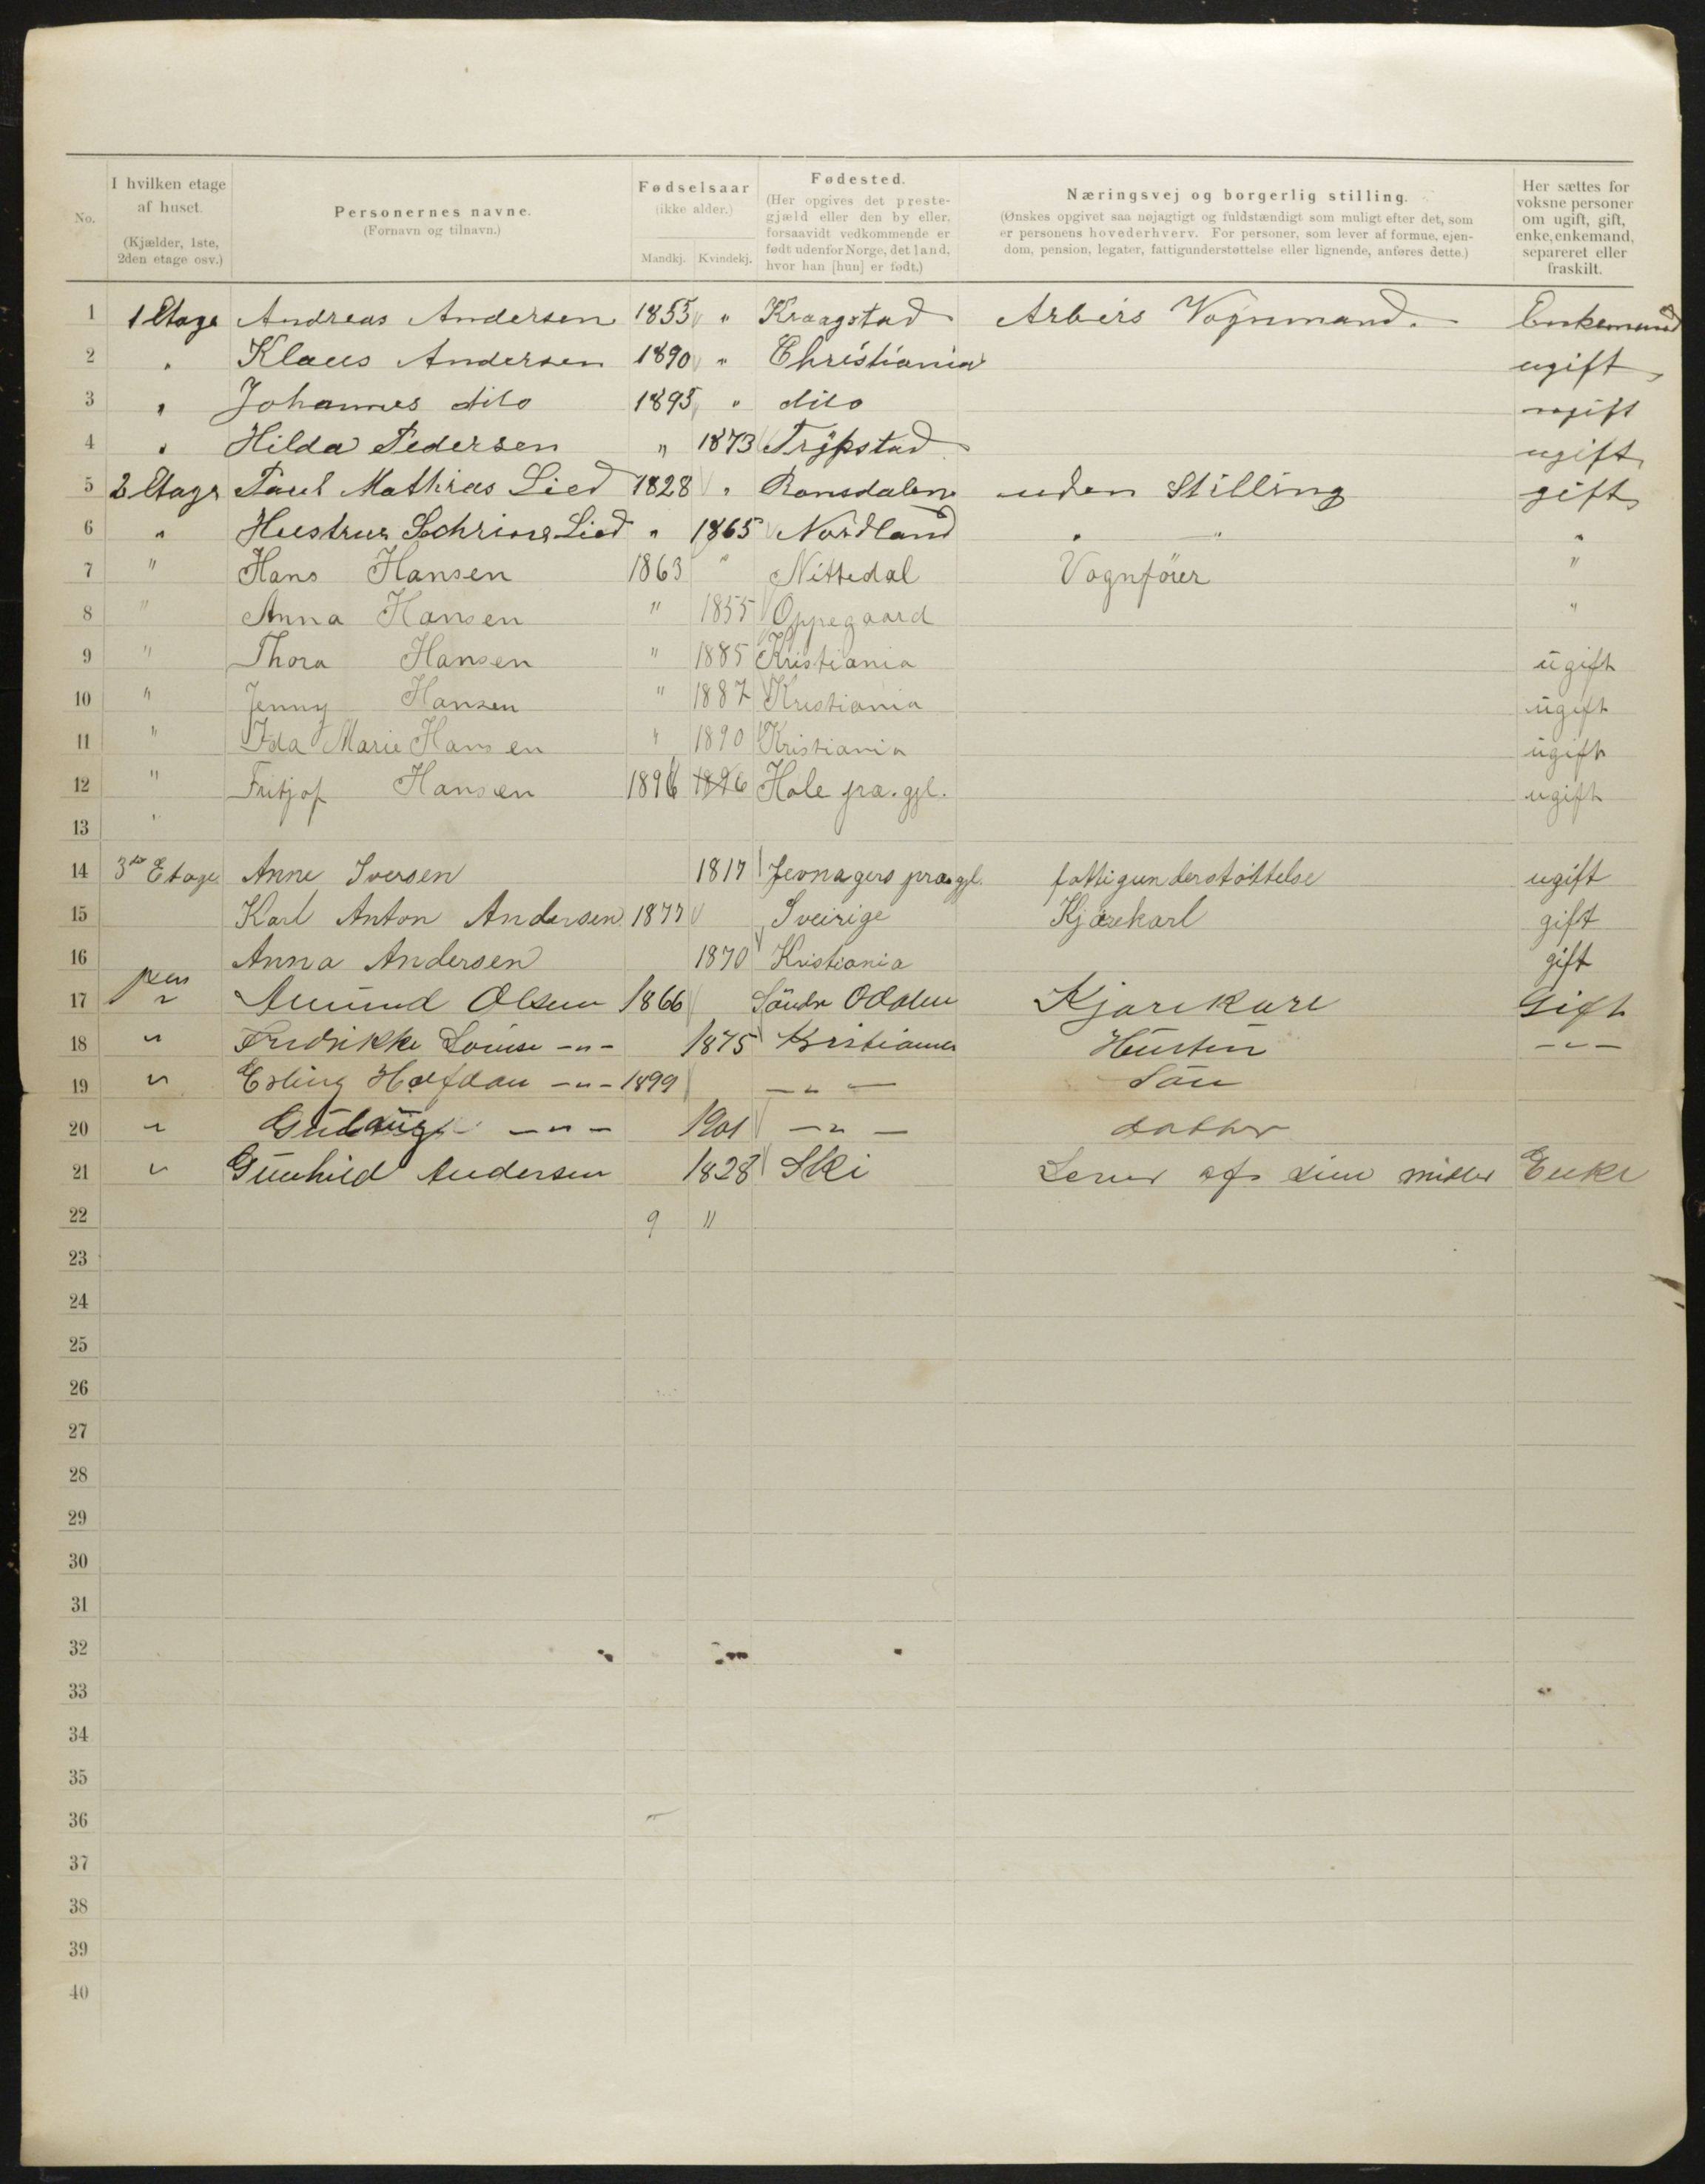 No.
I hvilken etage af huset. (Kjælder, 1ste, 2den etage osv.)
Personernes navne. (Fornavn og tilnavn.)
Fødselsaar (ikke alder.) Mandkj. Kvindekj.
Fødested. (Her opgives det prestegjæld eller den by eller, forsaavidt vedkommende er født udenfor Norge, det land, hvor han [hun] er født.)
Næringsvej og borgerlig stilling. (Ønskes opgivet saa nøjagtigt og fuldstændigt som muligt efter det, som er personens hovederhverv. For personer, som lever af formue, ejendom, pension, legater, fattigunderstøttelse eller lignende, anføres dette.)
Her sættes for voksne personer om ugift, gift, enke, enkemand, separeret eller fraskilt.
1 1 Etage Andreas Andersen 1855 " Kraagstad Arbeirs Vognmand. Enkemand
2 " Klaus Andersen 1890 " Christiania ugift
3 " Johannes dito 1895 " dito ugift
4 " Hilda Pedersen " 1873 Trÿkstad ugift
5 2 Etage Paul Mathias Lied 1828 " Romsdalen uden Stilling gift
6 " Hustru Lied " 1865 Nordland " " "
7 " Hans Hansen 1863 " Nittedal Vognfører "
8 " Anna Hansen " 1855 Oppegaard "
9 " Thora Hansen " 1885 Kristiania ugift
10 " Jenny Hansen " 1887 Kristiania ugift
11 " Ida Marie Hansen " 1890 Kristiania ugift
12 " Fritjof Hansen 1896 1896 Hole præ.gjl. ugift
13 "
14 3die Etage Anne Iversen 1817 Jevnagers præ.gjl. fattigunderstøttelse ugift
15 Karl Anton Andersen 1877 Sveirige Kjørekarl gift
16 Anna Andersen 1870 Kristiania gift
17 " Amund Olsen 1866 Söndr Odalen Kjørekarl Gift
18 " Fredrikke Louise -"- 1875 Kristiania Hustru -"-
19 " Erling Halfdan -"- 1899 -"- Sön
20 " Gudlaug -"- 1901 -"- datter
21 " Gunhild Andersen 1828 Ski Lever af sine midler Enke
22 9 11
23
24
25
26
27
28
29
30
31
32
33
34
35
36
37
38
39
40